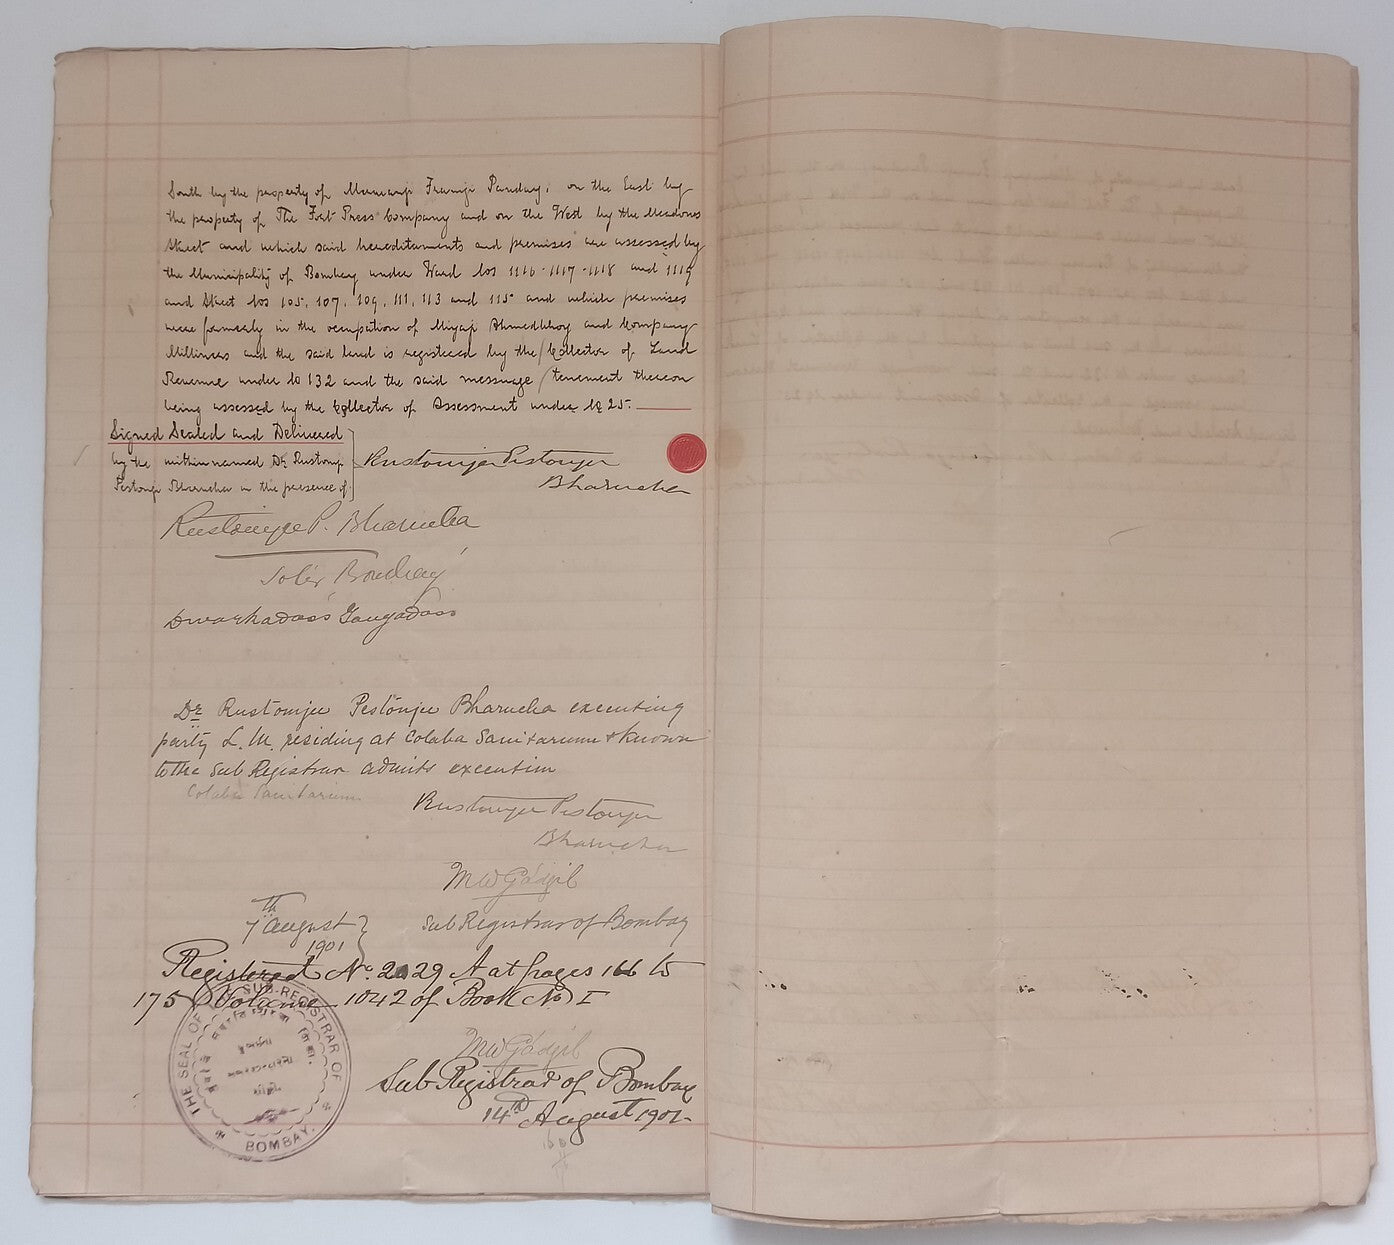 South by the property of Muncarji Framji Panday, on the East by
the property of The Fort Press Company and on the West by the Meadows
Street and which said hereditaments and premises are assessed by
the Municipality of Bombay under Ward Nos 1116 - 1117 - 1118 and 1119
and Street Nos 105, 107, 109, 111, 113 and 115 and which premises
were formerly in the occupation of Miyaji Ahmedbhoy and Company
Milliners and the said land is registered by the Collector of Land
Revenue under No 132 and the said message / tenement thereon
being assessed by the Collector of Assessment under No 25.
Signed Sealed and Delivered
by the within named Dr Rustomji
Pestonji Bharucha in the presence of
Rustomjee Pestonjee
Bharucha
Rustomjee P. Bharucha
Solr Bombay
Dwarkadass Gangadass
Dr Rustomjee Pestonjee Bharucha executing
party L. M. residing at Colaba Sanitarium & known
to the Sub Registrar admits execution
Colaba Sanitarium
Rustomjee Pestonjee
Bharucha
MWGadgil
7th August
1901
Sub Registrar of Bombay
Registered No. 2029 A at pages 166 to
175 Volume 1042 of Book No I
MWGadgil
Sub Registrar of Bombay
14th August 1901
THE SEAL OF SUB-REGISTRAR OF
BOMBAY.